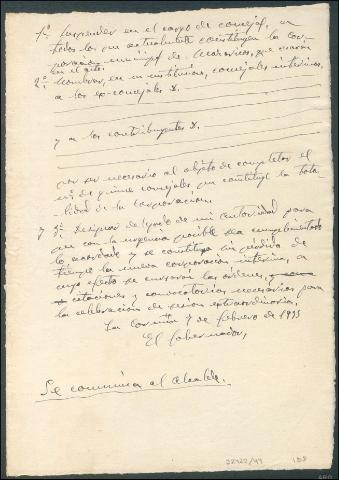 1º. Suspender en el cargo de concejal, a
todos los que actualmente constituyen la Cor-
poración municipal de
en el acto.
2º. Nombrar, en su sustitución, concejales interinos,
a los ex-concejales D.
y a los contribuyentes D.
por ser necesario al objeto de completar el
nº de quince concejales que constituye la tota-
lidad de la Corporación.
y 3º. Delegado de mi autoridad para
que con la urgencia posible sea cumplimentado
lo acordado y se constituya sin pérdida de
tiempo la nueva corporación interina, a
cuyo efecto se cursarán las órdenes,
citaciones y convocatorias necesarias para
la celebración de sesión extraordinaria.
La Coruña 7 de febrero de 1933
El Gobernador,
Se comunica al Alcalde.